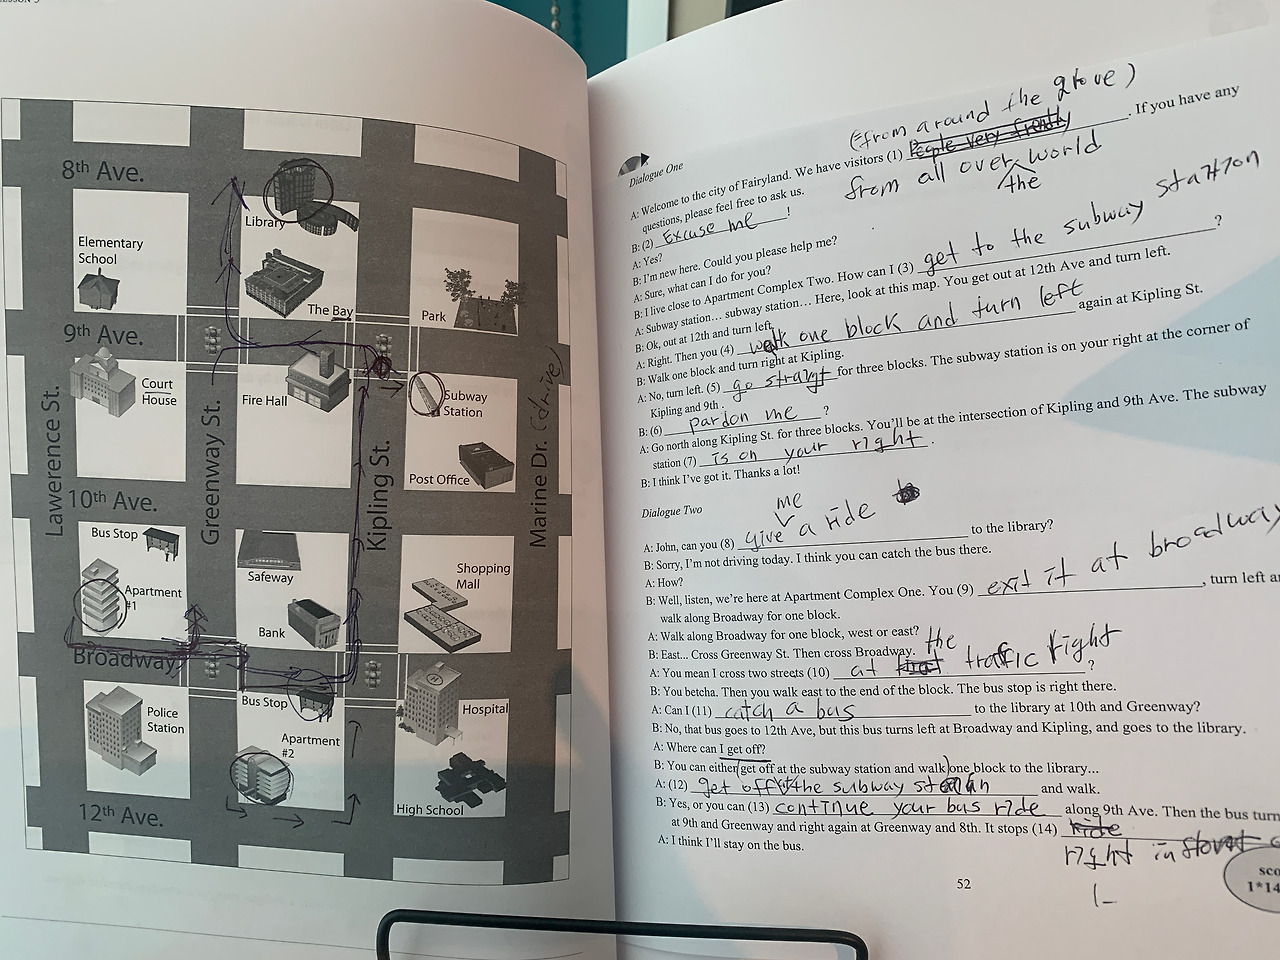 8th Ave.
Library
Elementary
School
The Bay
Park
9th Ave.
Court
House
Fire Hall
Subway
Station
Lawerence St.
Greenway St.
Kipling St.
Marine Dr. (drive)
Post Office
10th Ave.
Bus Stop
Safeway
Shopping
Mall
Apartment
#1
Bank
Broadway
Bus Stop
Hospital
Police
Station
Apartment
#2
High School
12th Ave.
(=from around the grove)
Dialogue One
A: Welcome to the city of Fairyland. We have visitors (1) People very friently. If you have any
questions, please feel free to ask us. from all over the world
B: (2) Excuse me !
A: Yes?
B: I'm new here. Could you please help me?
A: Sure, what can I do for you?
B: I live close to Apartment Complex Two. How can I (3) get to the subway station ?
A: Subway station... subway station... Here, look at this map. You get out at 12th Ave and turn left.
B: Ok, out at 12th and turn left.
A: Right. Then you (4) walk one block and turn left again at Kipling St.
B: Walk one block and turn right at Kipling.
A: No, turn left. (5) go straigt for three blocks. The subway station is on your right at the corner of
Kipling and 9th .
B: (6) pardon me ?
A: Go north along Kipling St. for three blocks. You'll be at the intersection of Kipling and 9th Ave. The subway
station (7) is on your right .
B: I think I've got it. Thanks a lot!
Dialogue Two
A: John, can you (8) give me a ride to the library?
B: Sorry, I'm not driving today. I think you can catch the bus there.
A: How?
B: Well, listen, we're here at Apartment Complex One. You (9) exit it at broadway , turn left
walk along Broadway for one block.
A: Walk along Broadway for one block, west or east?
B: East... Cross Greenway St. Then cross Broadway.
A: You mean I cross two streets (10) at the traffic right ?
B: You betcha. Then you walk east to the end of the block. The bus stop is right there.
A: Can I (11) catch a bus to the library at 10th and Greenway?
B: No, that bus goes to 12th Ave, but this bus turns left at Broadway and Kipling, and goes to the library.
A: Where can I get off?
B: You can either (get off at the subway station and walk) one block to the library...
A: (12) get off the subway and walk.
B: Yes, or you can (13) continue your bus ride along 9th Ave. Then the bus turn
at 9th and Greenway and right again at Greenway and 8th. It stops (14) ride
A: I think I'll stay on the bus. right in
52
sco
1*14